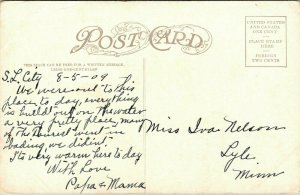 POST CARD
THIS SPACE CAN BE USED FOR A WRITTEN MESSAGE
UNITED STATES
AND CANADA
ONE CENT
PLACE STAMP
HERE
FOREIGN
TWO CENTS
S.L. City 8-5-09
We were out to this
place to day, everything
is build out on the water
a very pretty place, many
of the crowd went in
bading, we dident.
It's very warm here to day
With Love
Papa & Mama
Miss Iva Nelson
Lyle,
Minn